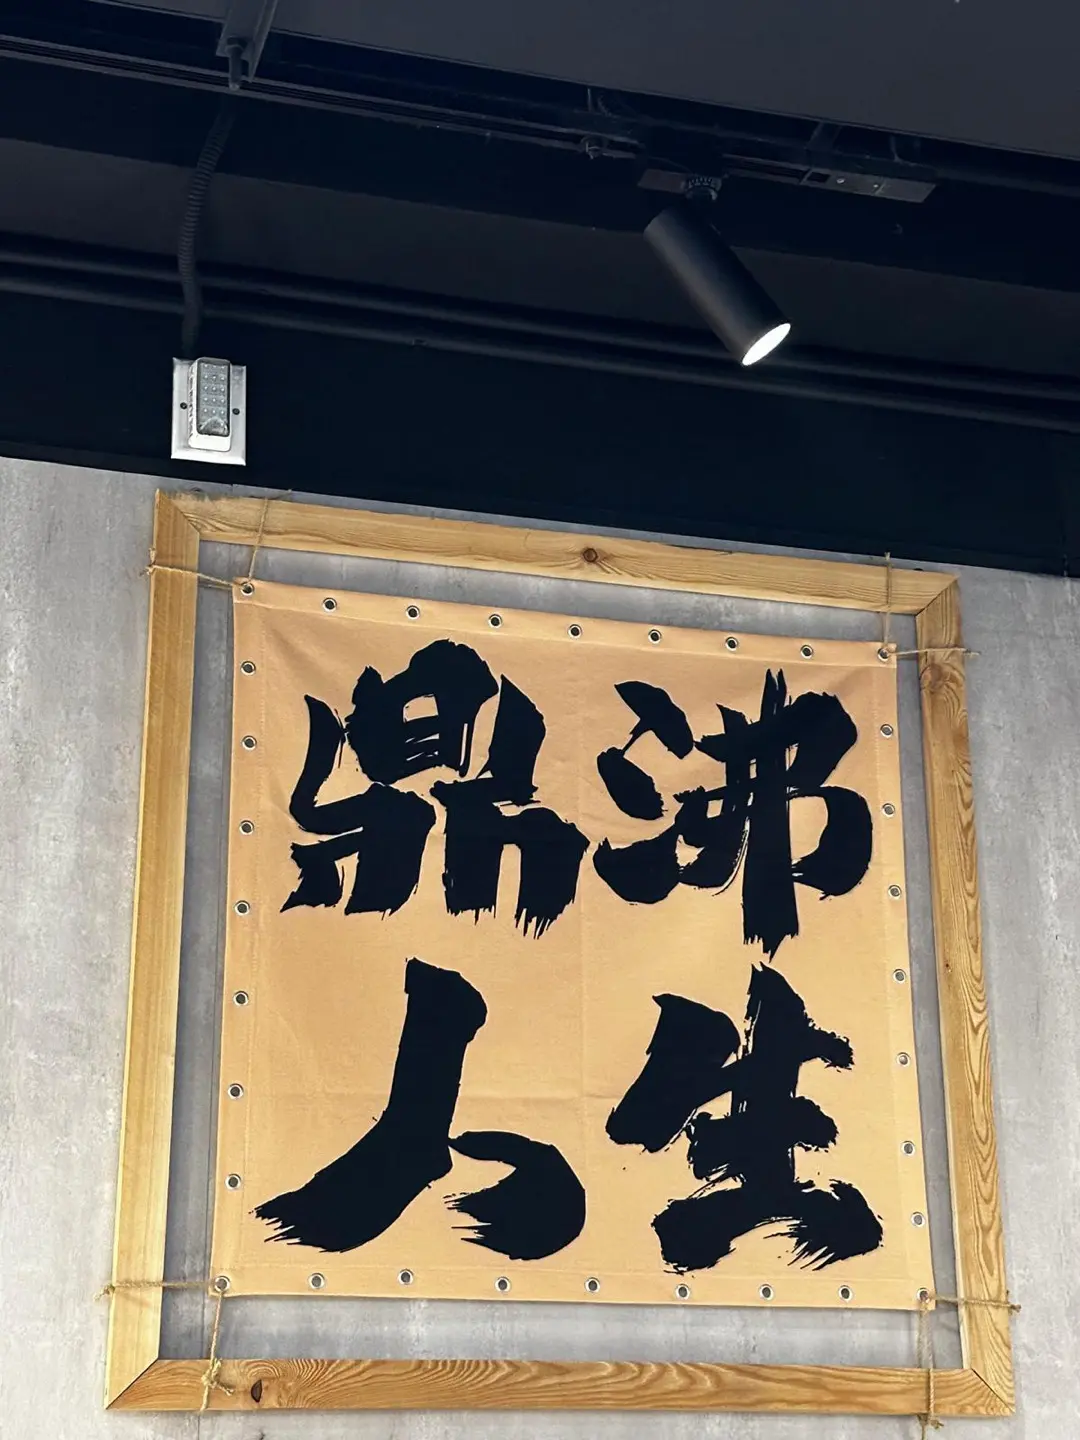 鼎沸
人生